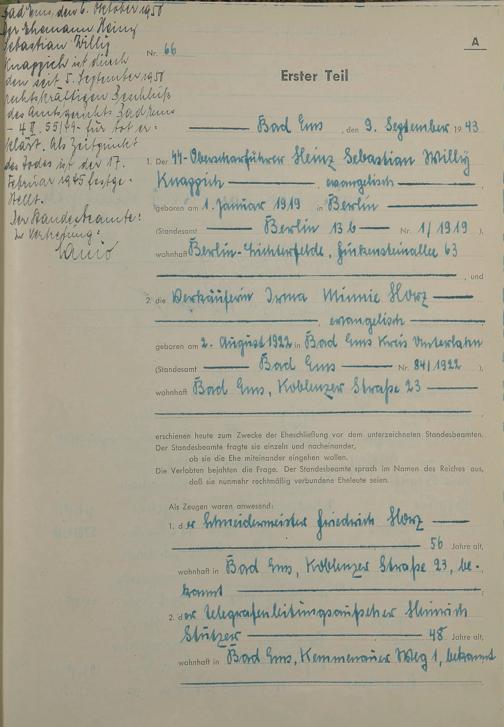 Bad Ems, den 6. Oktober 1950
Der Ehemann Heinz
Sebastian Willy
Knappich ist durch
den seit 5. September 1950
rechtskräftigen Beschluß
des Amtsgerichts Bad Ems
- 4 II. 55/49 - für tot er-
klärt. Als Zeitpunkt
des Todes ist der 17.
Februar 1945 festge-
stellt.
Der Standesbeamte:
In Vertretung:
A
Nr. 66
Erster Teil
Bad Ems, den 9. September 1943
1. Der SS-Oberscharführer Heinz Sebastian Willy
Knappich, evangelisch
geboren am 1. Januar 1919 in Berlin
(Standesamt Berlin 13 b Nr. 1/1919),
wohnhaft Berlin-Lichterfelde, Finkensteinallee 63
, und
2. die Verkäuferin Irma Minnie Storz
, evangelisch
geboren am 2. August 1922 in Bad Ems Kreis Unterlahn
(Standesamt Bad Ems Nr. 84/1922),
wohnhaft Bad Ems, Koblenzer Straße 23
erschienen heute zum Zwecke der Eheschließung vor dem unterzeichneten Standesbeamten.
Der Standesbeamte fragte sie einzeln und nacheinander,
ob sie die Ehe miteinander eingehen wollen.
Die Verlobten bejahten die Frage. Der Standesbeamte sprach im Namen des Reiches aus,
daß sie nunmehr rechtmäßig verbundene Eheleute seien.
Als Zeugen waren anwesend:
1. der Schneidermeister Friedrich Storz
56 Jahre alt,
wohnhaft in Bad Ems, Koblenzer Straße 23, be-
kannt
2. der Telegrafenleitungsaufseher Heinrich
Stutzer 48 Jahre alt,
wohnhaft in Bad Ems, Kemmenauer Weg 1, bekannt